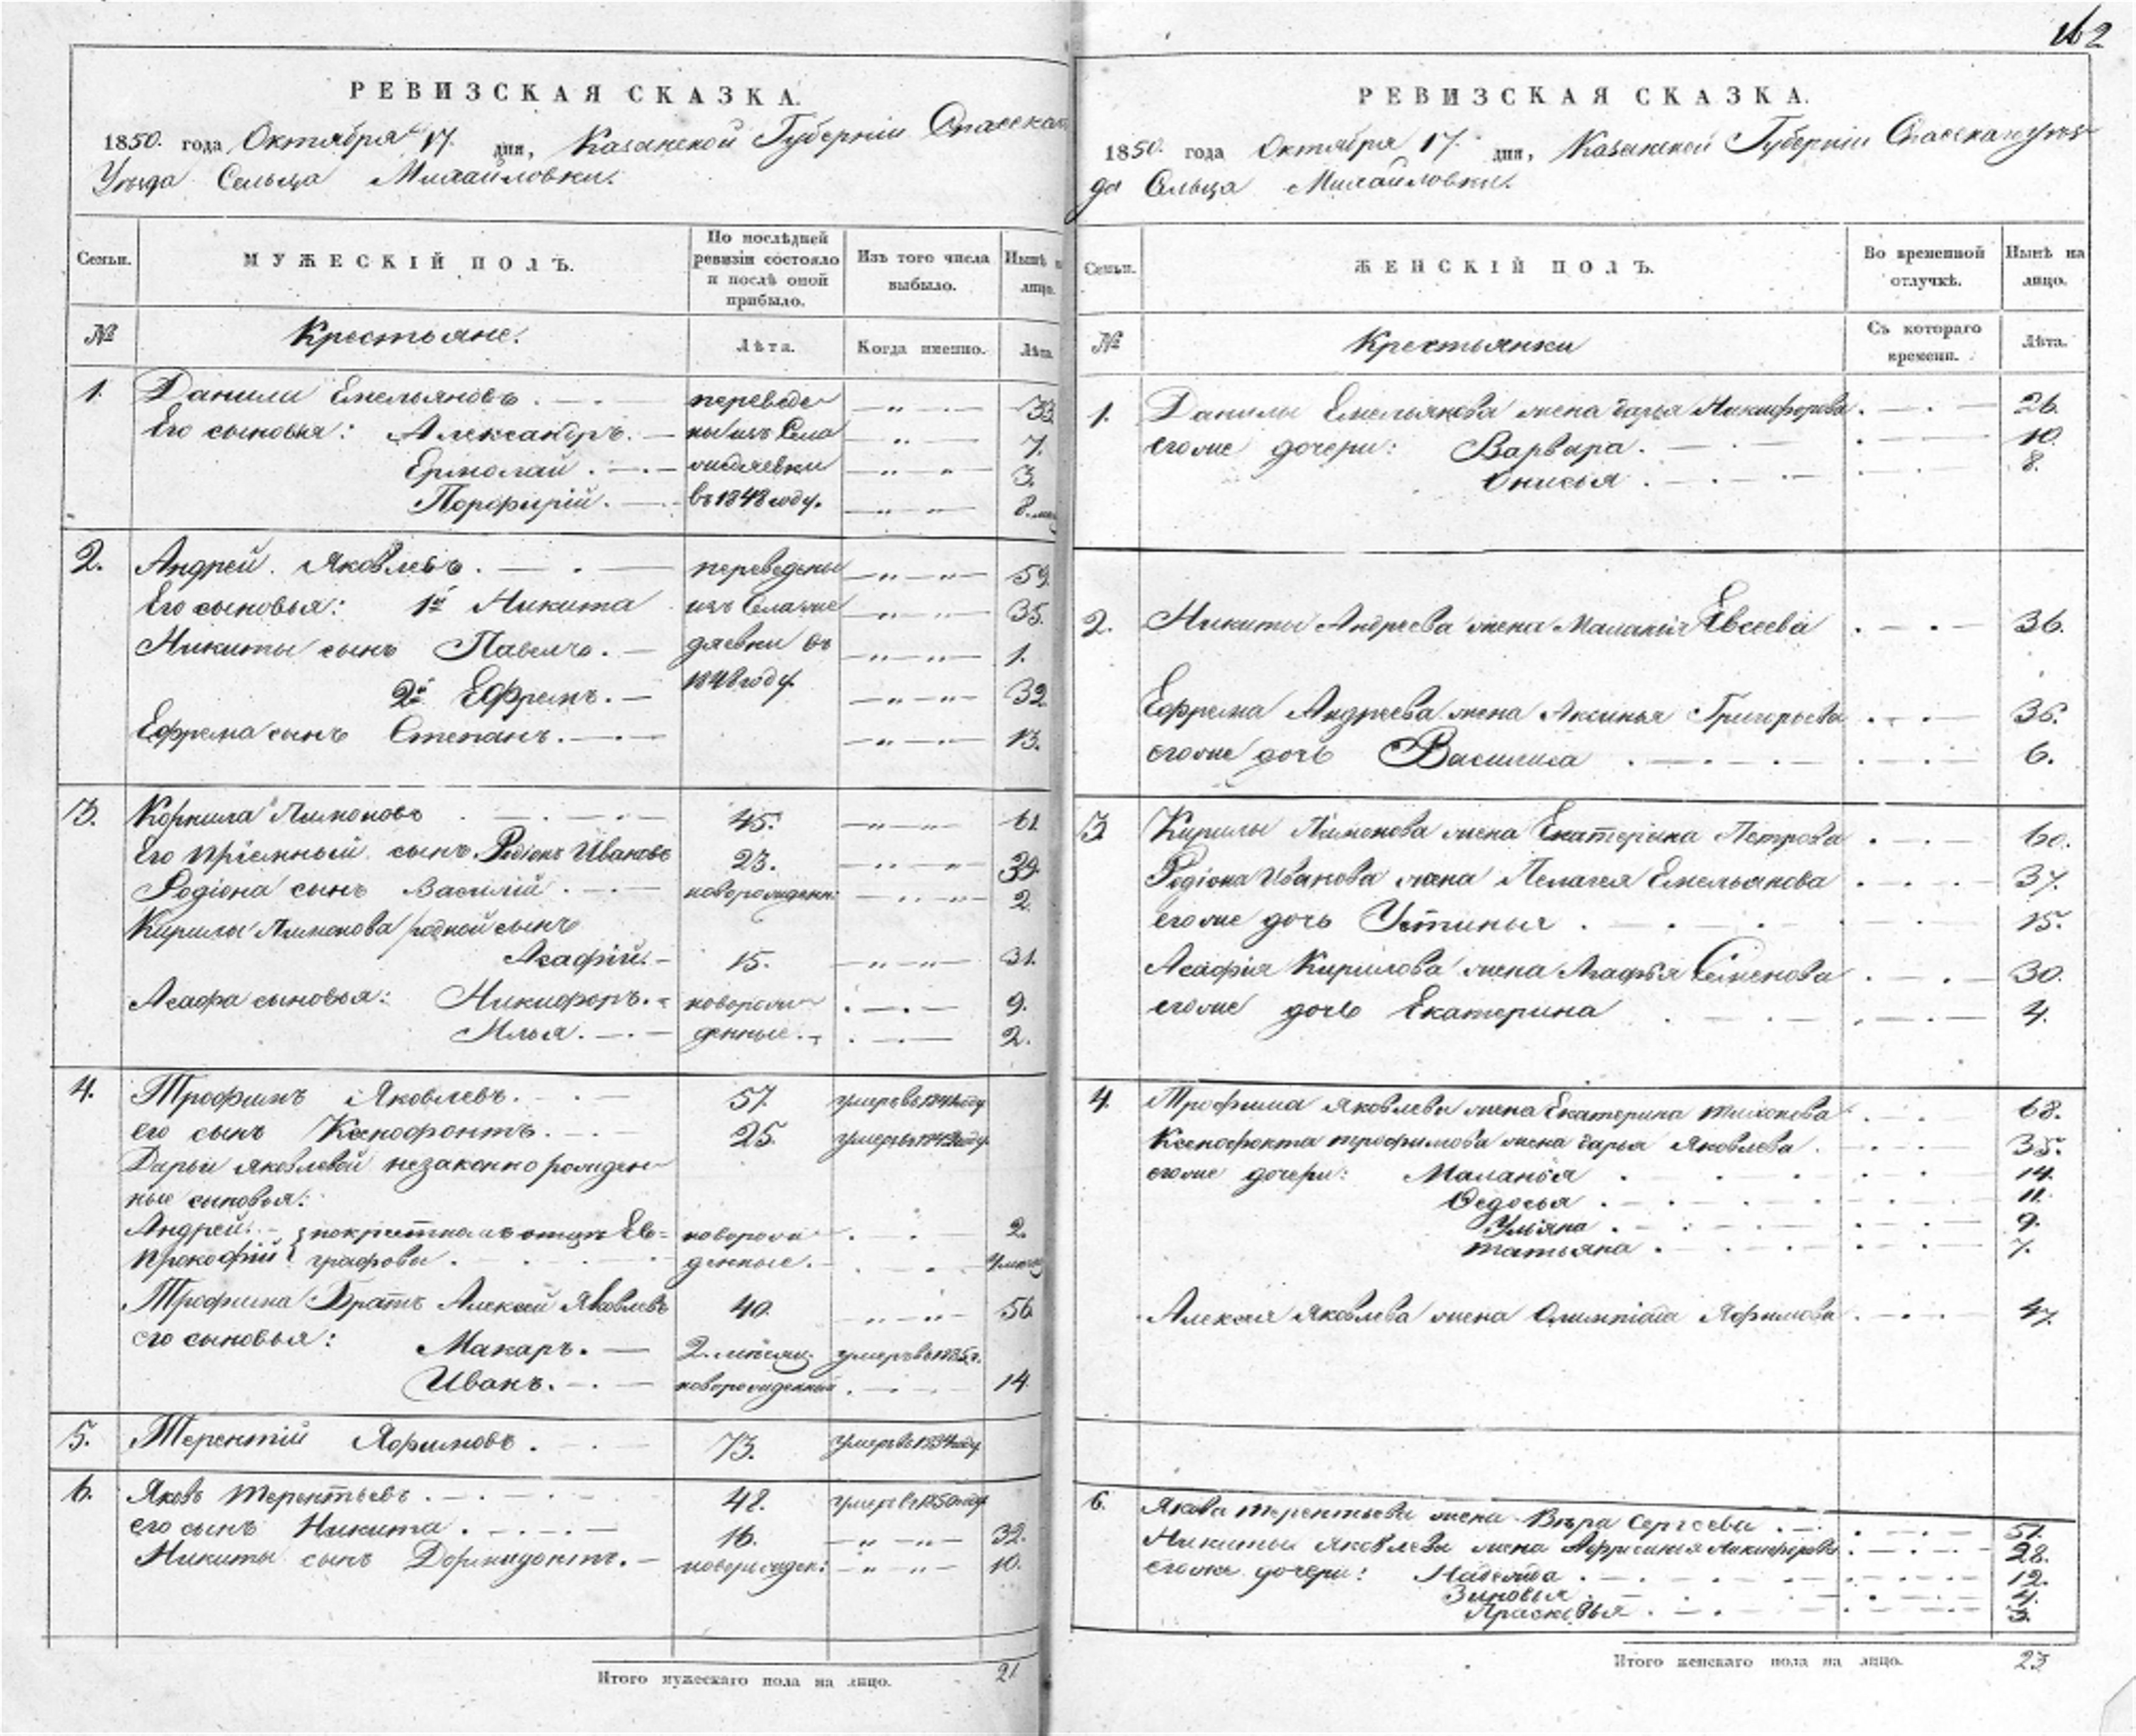 162
РЕВИЗСКАЯ СКАЗКА.
1850. года Октября 17. дня, Казанской Губерніи Спасскаго
Уѣзда Сельца Михайловки.
Семьи.
МУЖЕСКІЙ ПОЛЪ.
По послѣдней ревизіи состояло и послѣ оной прибыло.
Изъ того числа выбыло.
Нынѣ на лицо.
№
Крестьяне.
Лѣта.
Когда именно.
Лѣта
1. Данили Емельяновъ. переведе- 33.
Его сыновья: Александръ. ны изъ Села 7.
Ермолай. 3.
Порфирій. въ 1848 году. 8. мѣ
2. Андрей Яковлевъ. переведены 59.
Его сыновья: 1й Никита изъ Села 35.
Никиты сынъ Павелъ. въ 1.
2й Ефремъ. 1848 году. 32.
Ефрема сынъ Степанъ. 13.
3. Корнила Пимоновъ 45. 61.
Его пріемный сынъ Родіонъ Ивановъ 23. 39.
Родіона сынъ Василій. новорожден: 2.
Кирилы Пимонова родной сынъ
Асафій. 15. 31.
Асафа сыновья: Никифоръ. новорож- 9.
Илья. денные. 2.
4. Трофимъ Яковлевъ. 57. умеръ въ году
его сынъ Ксенофонтъ. 25. умеръ въ году
Дарьи Яковлевой незаконнорожден-
ные сыновья:
Андрей. по крестномъ отцу Ев= новорож 2.
Прокофій графовы. денные. мѣсяц
Трофима Братъ Алексей Яковлевъ 40. 56
его сыновья: Макаръ. 2. мѣсяц. умеръ въ 1835 г.
Иванъ. новорожденный 14.
5. Терентій Яфимовъ. 73. умеръ въ 1834 году
6. Яковъ Терентьевъ. 48. умеръ въ 1850 году
его сынъ Никита. 16. 32.
Никиты сынъ Дормидонтъ. новорожден: 10.
Итого мужескаго пола на лицо. 21
РЕВИЗСКАЯ СКАЗКА.
1850. года Октября 17. дня, Казанской Губерніи Спасскаго уѣз-
да Сельца Михайловки.
Семьи.
ЖЕНСКІЙ ПОЛЪ.
Во временной отлучкѣ.
Нынѣ на лицо.
№
Крестьянки
Съ котораго времени.
Лѣта.
1. Данилы Емельянова жена Дарья Никифорова. 26.
его же дочери: Варвара. 10.
Онисья. 8.
2. Никиты Андреева жена Маланія Евсеева 36.
Ефрема Андреева жена Аксинья Григорьева 36.
его же дочь Василиса 6.
3 Кирилы Пимонова жена Екатерина Петрова 60.
Родіона Иванова жена Пелагея Емельянова 37.
его же дочь Устинья 15.
Асафія Кирилова жена Агафья Семенова 30.
его же дочь Екатерина 4.
4. Трофима Яковлева жена Екатерина Тихонова 68.
Ксенофонта Трофимова жена Дарья Яковлева. 35.
его же дочери: Маланья 14.
Ѳедосья 11.
Ульяна 9.
Татьяна 7.
Алексея Яковлева жена Олимпіада Яфимова 47.
6. Якова Терентьева жена Вѣра Сергеева 51.
Никиты Яковлева жена Никифорова 28.
его же дочери: Надежда 12.
Зиновья 4.
Прасковья 3.
Итого женскаго пола на лицо. 23